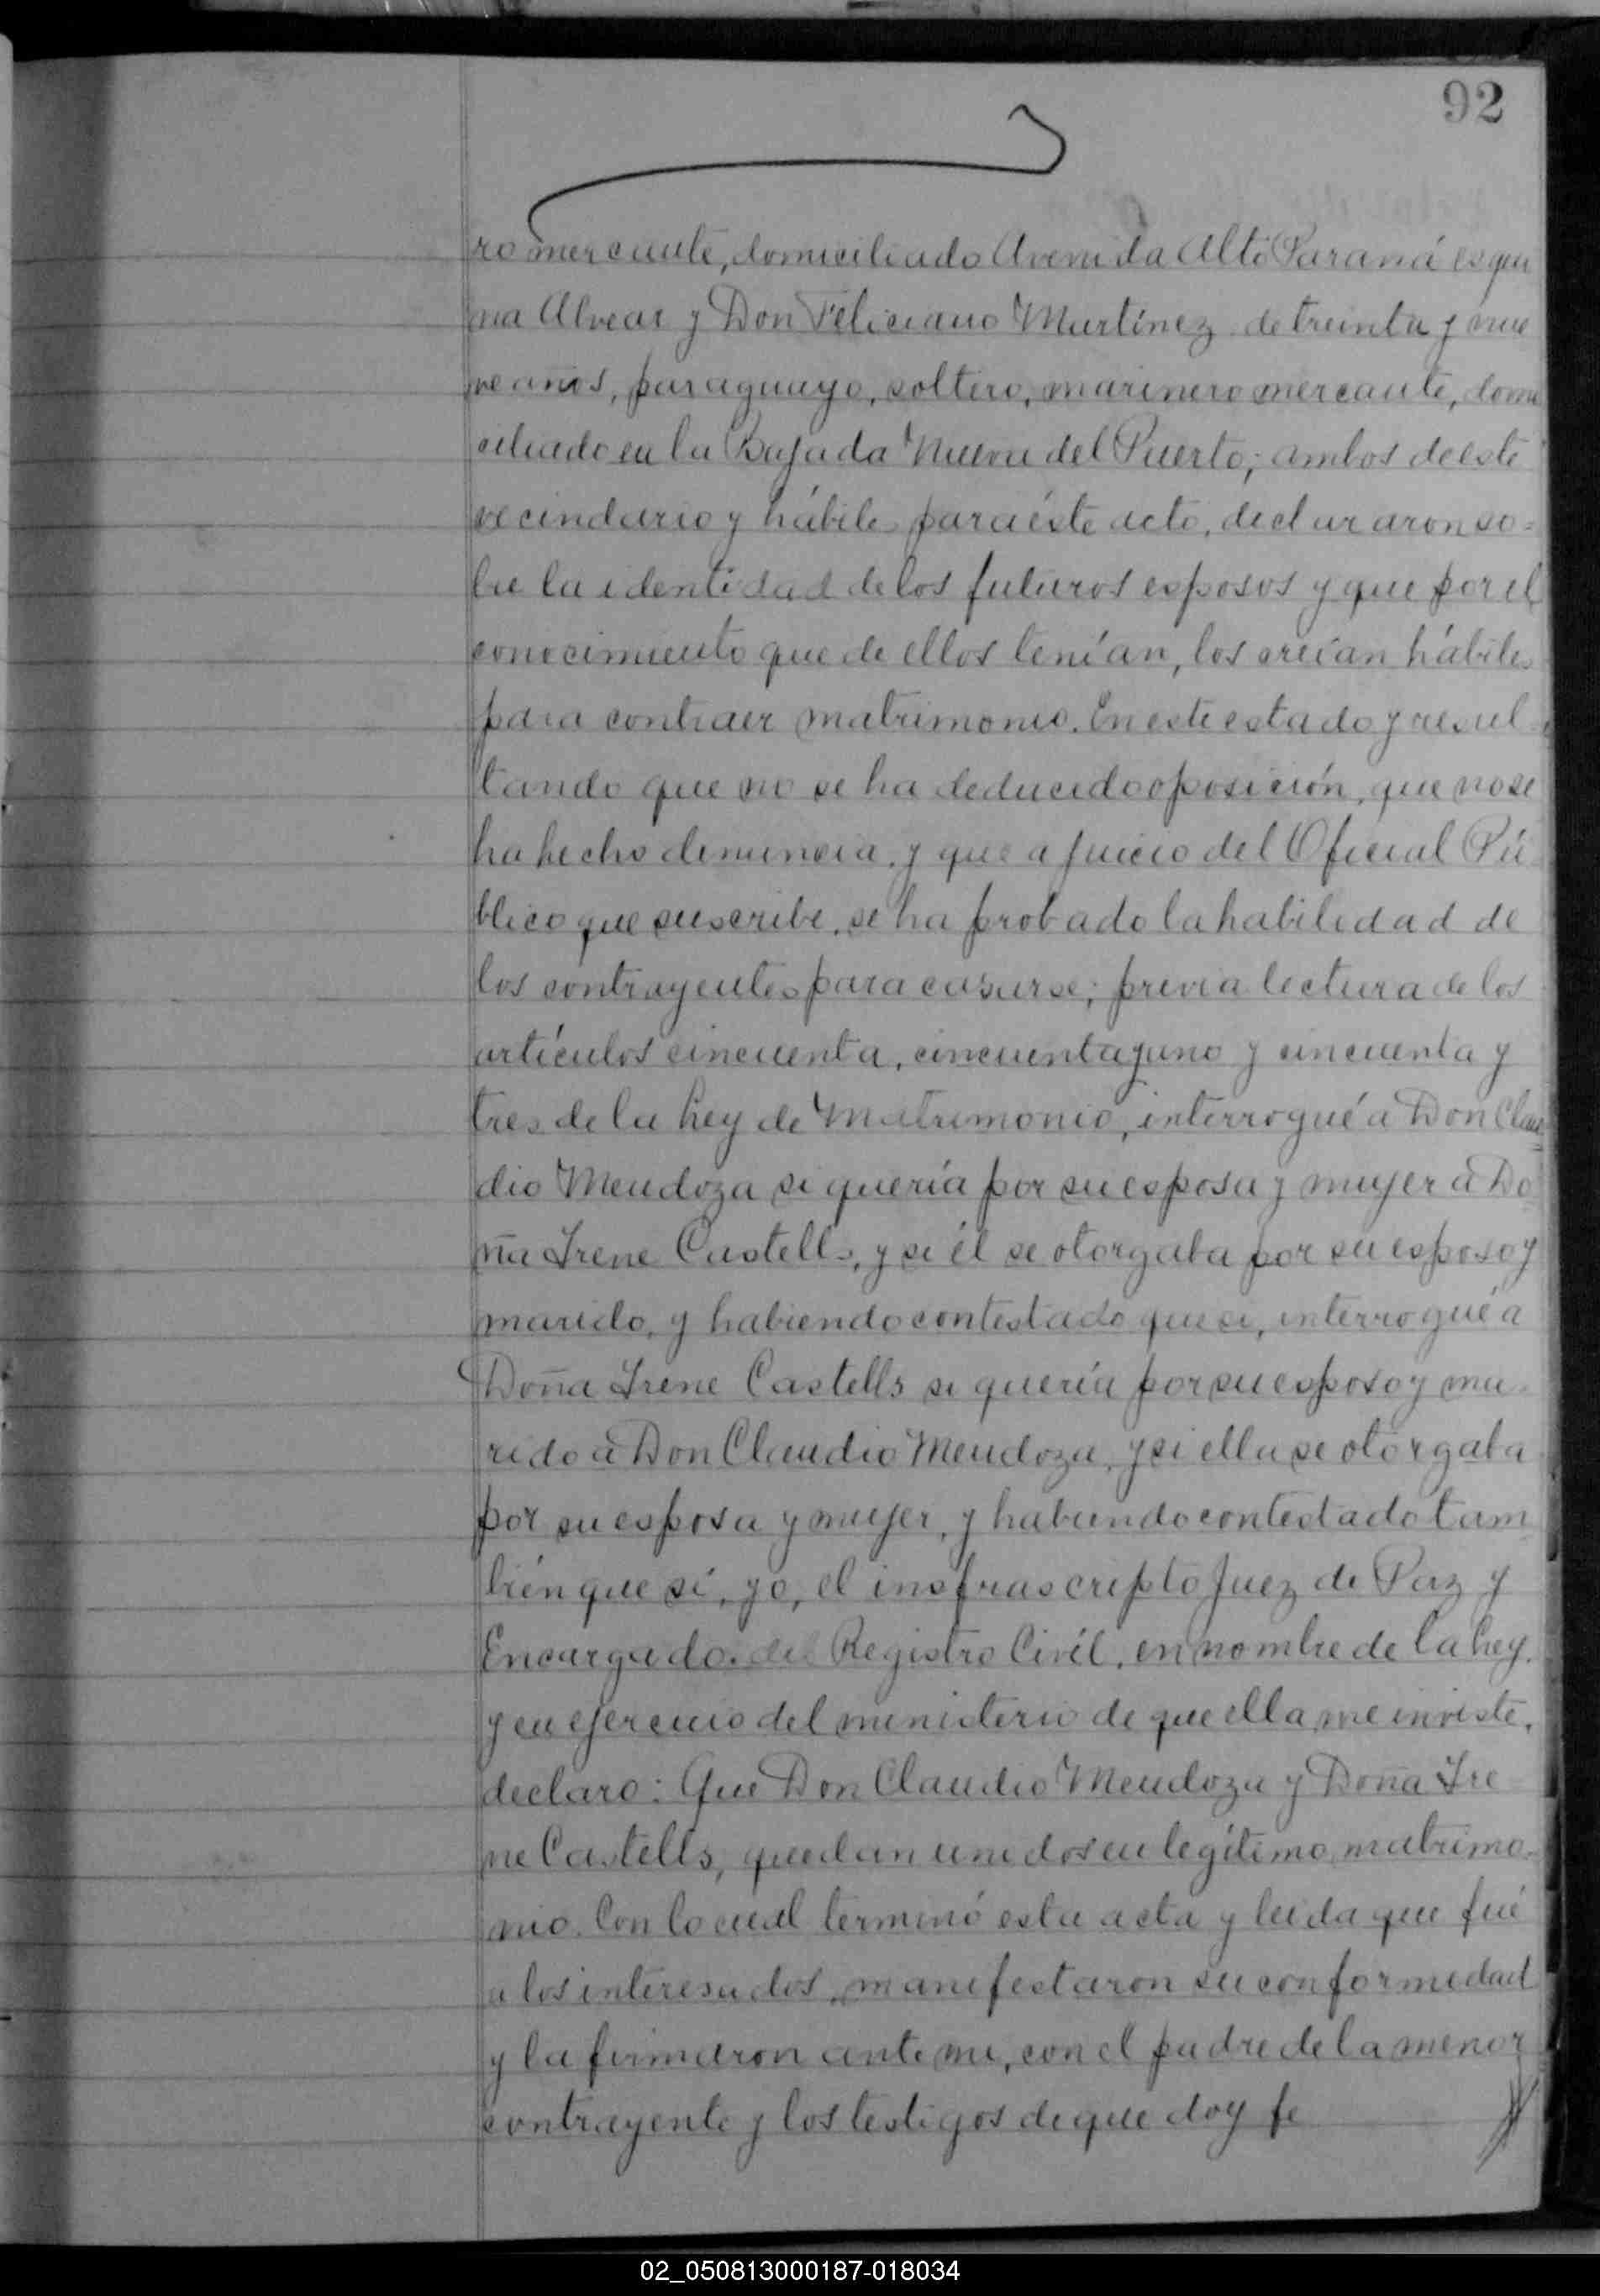 92
ro mercante, domiciliado Avenida Alto Paraná esqui
na Alvear y Don Feliciano Martínez de treinta y nue
ve años, paraguayo, soltero, marinero mercante, domi
ciliado en la Bajada Nueva del Puerto; ambos de este
vecindario y hábiles para éste acto, declararon so=
bre la identidad de los futuros esposos y que por el
conocimiento que de ellos tenían, los creían hábiles
para contraer matrimonio. En este estado y resul-
tando que no se ha deducido oposición, que no se
ha hecho denuncia, y que a juicio del Oficial Pú
blico que suscribe, se ha probado la habilidad de
los contrayentes para casarse; previa lectura de los
artículos cincuenta, cincuenta y uno y cincuenta y
tres de la Ley de Matrimonio, interrogué a Don Clau=
dio Mendoza si quería por su esposa y mujer a Do
ña Irene Castells, y si él se otorgaba por su esposo y
marido, y habiendo contestado que si, interrogué a
Doña Irene Castells si quería por su esposo y ma-
rido a Don Claudio Mendoza, y si ella se otorgaba
por su esposa y mujer, y habiendo contestado tam
bién que sí, yo, el insfrascripto Juez de Paz y
Encargado del Registro Civíl, en nombre de la Ley,
y en ejercicio del ministerio de que ella me inviste,
declaro: Que Don Claudio Mendoza y Doña Ire-
ne Castells, quedan unidos en legítimo matrimo-
nio. Con lo cual terminó esta acta y leída que fué
a los interesados, manifestaron su conformidad
y la firmaron ante mi, con el padre de la menor
contrayente y los testigos de que doy fe
02_050813000187-018034